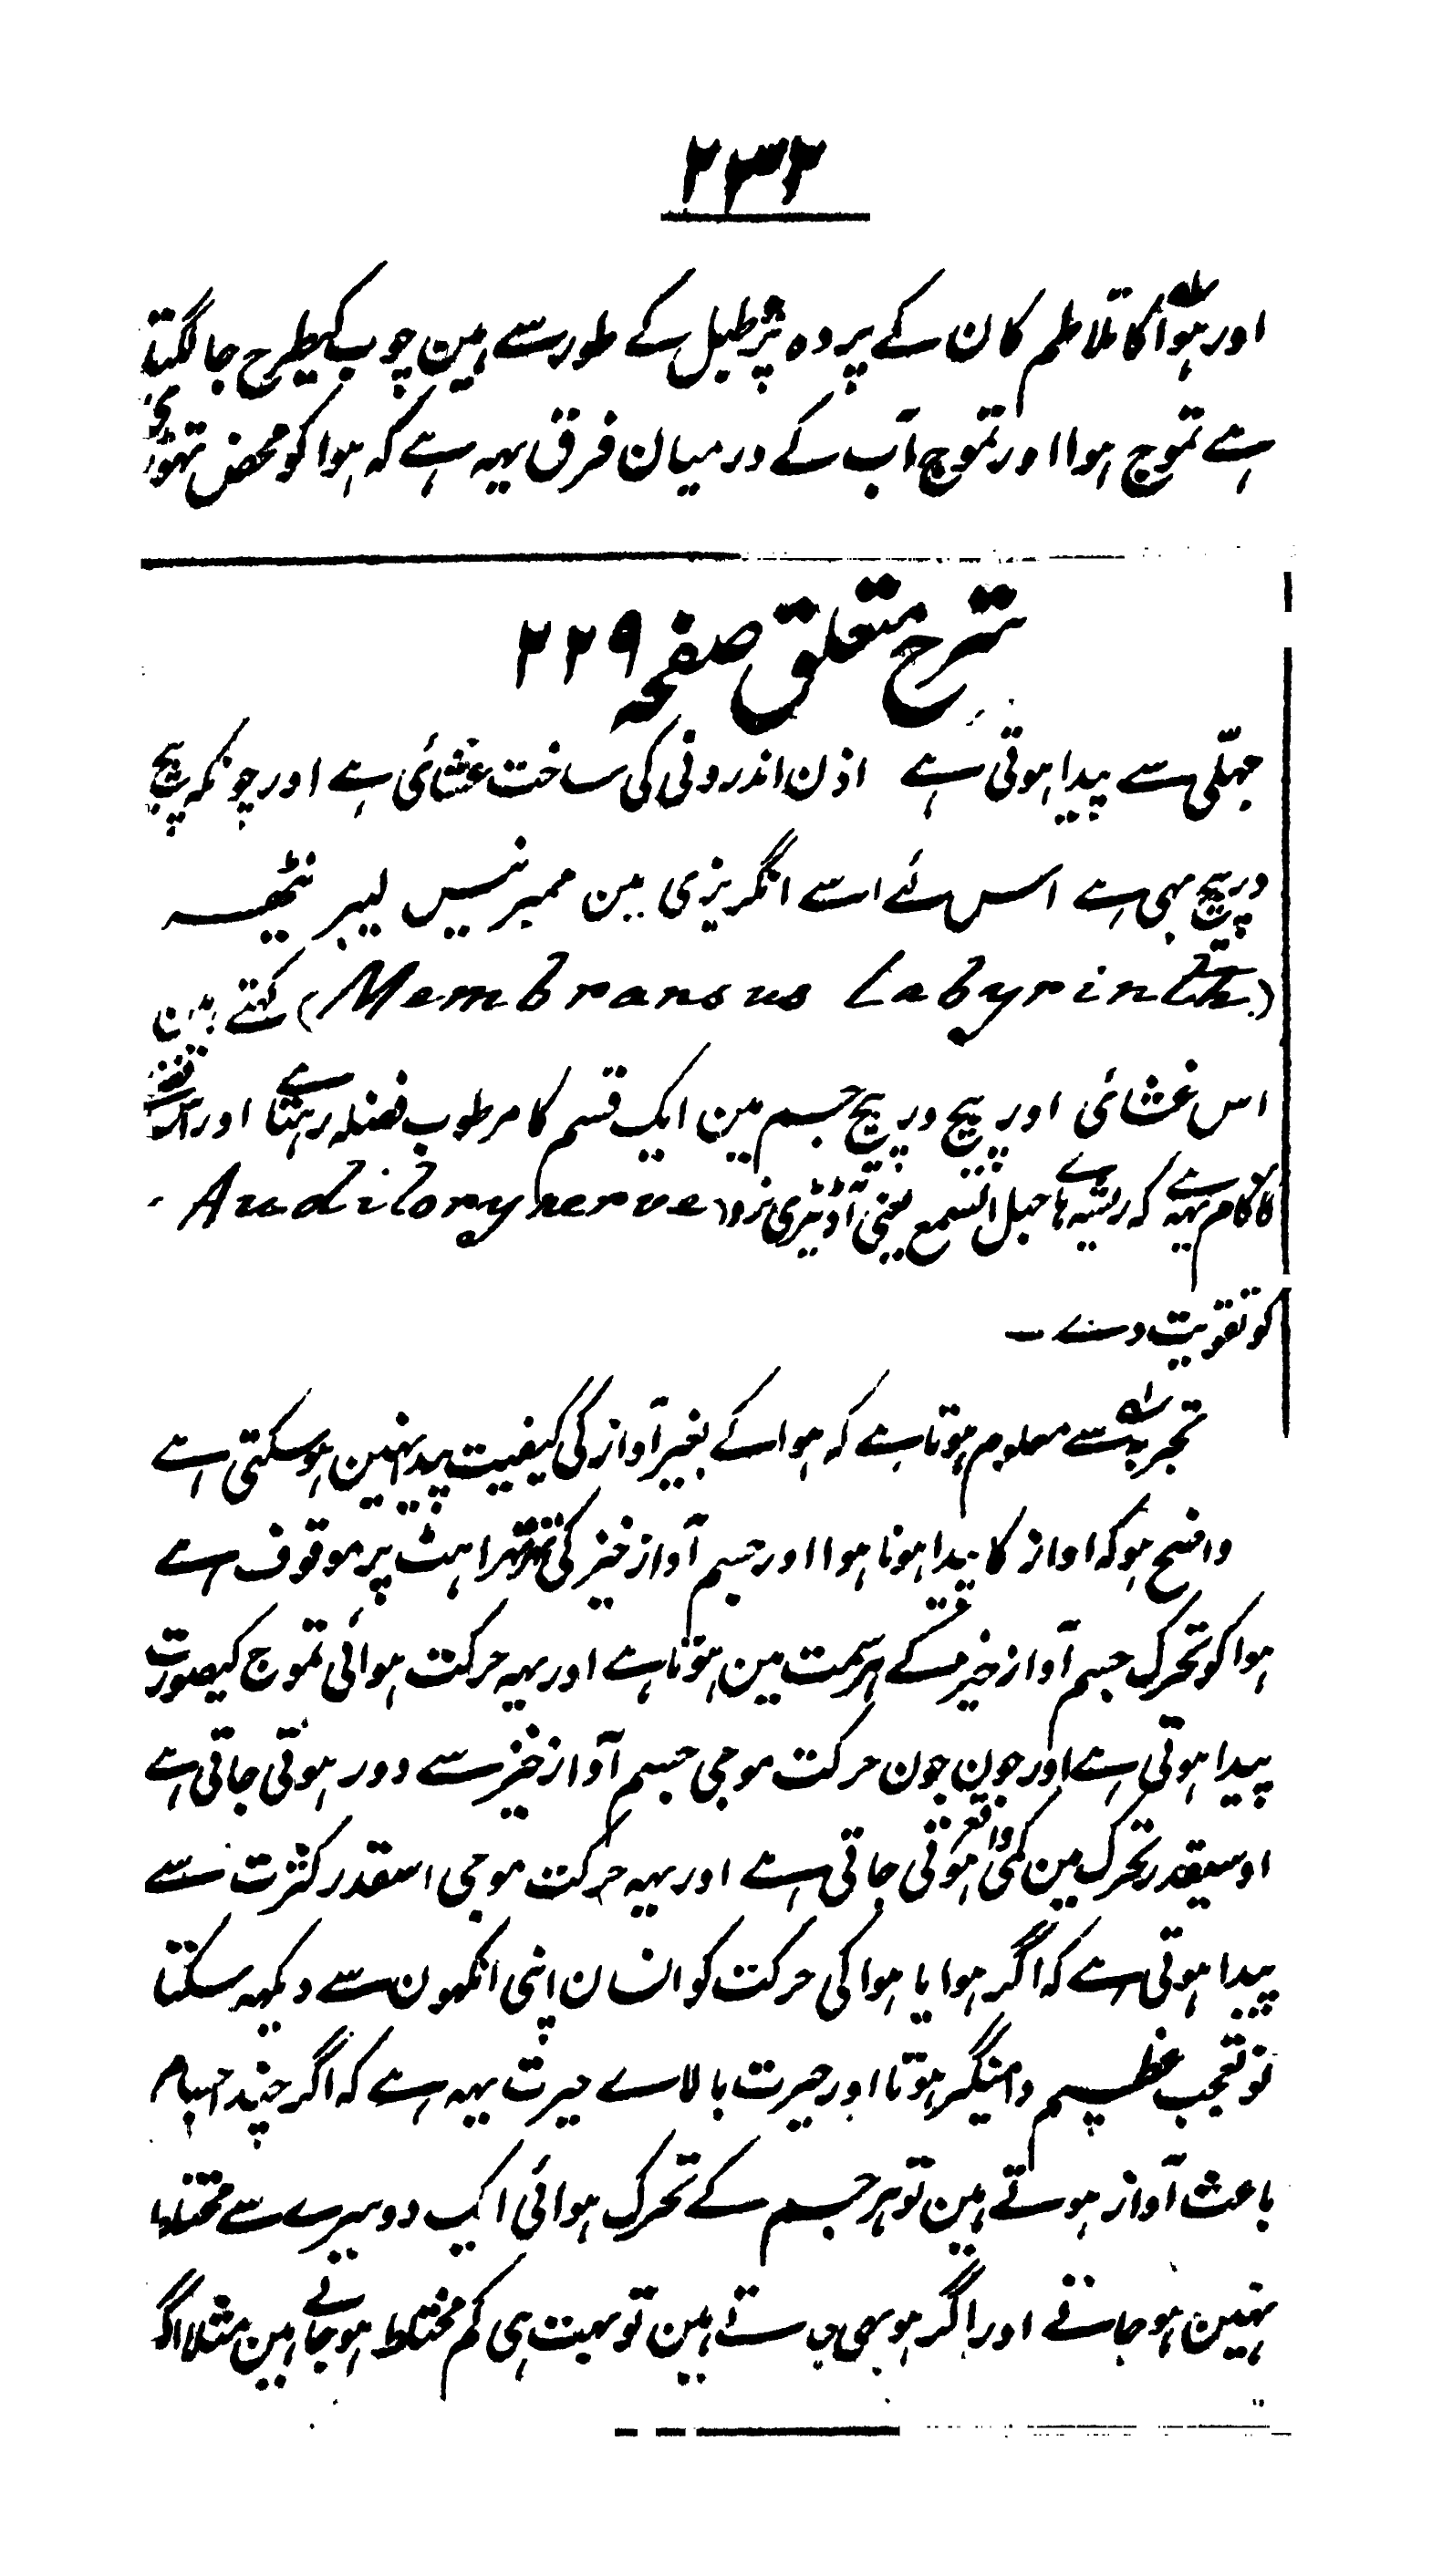 ۲۳۲
اور ہوا کا تلاطم کان کے پردہ پر طبل کے طور سے ہین چوب کیطرح جا لگتا
ہے تموج ہوا اور تموج آب کے درمیان فرق یہہ ہے کہ ہوا کو محض تہوڑی
شرح متعلق صفحہ ۲۲۹
جہلّی سے پیدا ہوتی ہے اذن اندرونی کی ساخت غشائی ہے اور چونکہ پیچ
در پیچ بہی ہے اس لئے اسے انگریزی مین ممبرنیس لیبرنٹھہ
(Membransus Labyrinth) کہتے ہین
اس غشائی اور پیچ در پیچ جسم مین ایک قسم کا مرطوب فضلہ رہتا ہے اور اس
کا کام یہہ ہے کہ ریشہ ہاے حبل السمع یعنی آڈیٹری نرو (Auditory nerve
کو تقویت دے ۔
تجربہ سے معلوم ہوتا ہے کہ ہوا کے بغیر آواز کی کیفیت پیدا نہین ہو سکتی ہے
واضح ہو کہ اواز کا پیدا ہونا ہوا اور جسم آواز خیز کی تہرتہراہٹ پر موقوف ہے
ہوا کو تحرک جسم آواز خیز کے ہر سمت مین ہوتا ہے اور یہہ حرکت ہوائی تموج کیصورت
پیدا ہوتی ہے اور جون جون حرکت موجی جسم آواز خیز سے دور ہوتی جاتی ہے
اوسیقدر تحرک مین کمی واقع ہوتی جاتی ہے اور یہہ حرکت موجی اسقدر کثرت سے
پیدا ہوتی ہے کہ اگر ہوا یا ہوا کی حرکت کو انسان اپنی انکہون سے دیکہہ سکتا
تو تعجب عظیم دامنگیر ہوتا اور حیرت بالاے حیرت یہہ ہے کہ اگر چند اجسام
باعث آواز ہوتے ہین تو ہر جسم کے تحرک ہوائی ایک دوسرے سے مختلط
نہین ہو جاتے اور اگر ہو بہی جاتے ہین تو بہت ہی کم مختلط ہو جاتے ہین مثلا اگر